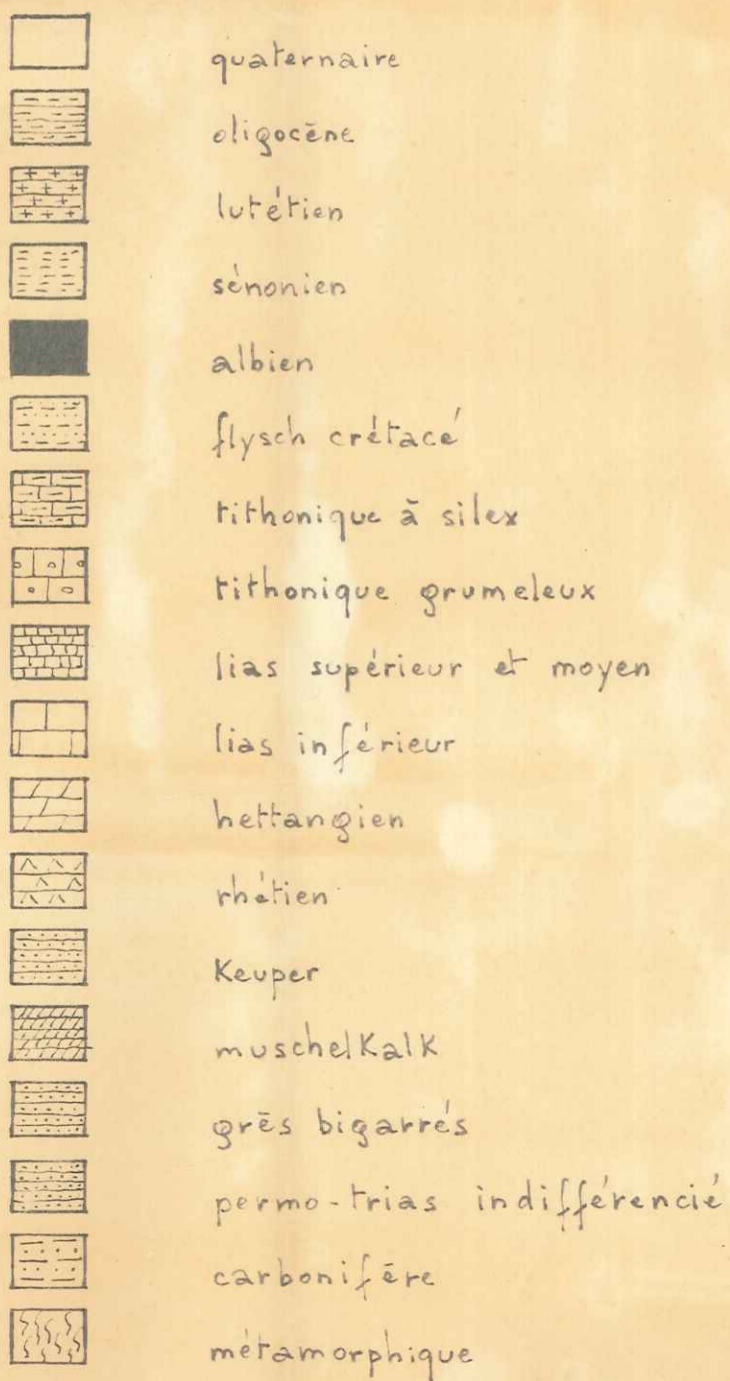 quaternaire
oligocène
lutétien
sénonien
albien
flysch crétacé
tithonique à silex
tithonique grumeleux
lias supérieur et moyen
lias inférieur
hettangien
rhétien
Keuper
muschelKalK
grès bigarrés
permo-trias indifférencié
carbonifère
métamorphique